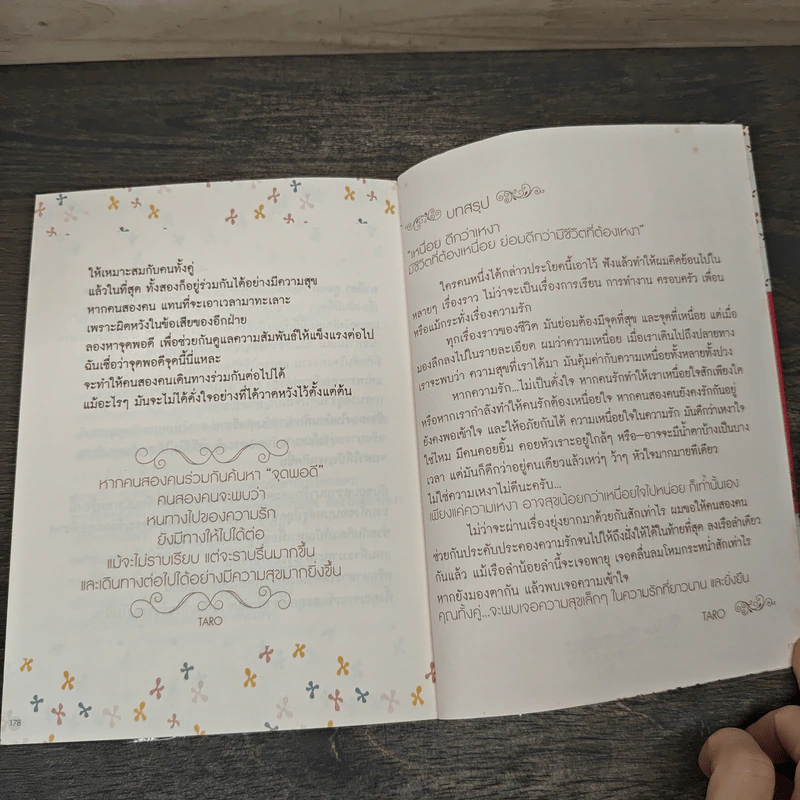 ให้เหมาะสมกับคนทั้งคู่
แล้วในที่สุด ทั้งสองก็อยู่ร่วมกันได้อย่างมีความสุข
หากคนสองคน แทนที่จะเอาเวลามาทะเลาะ
เพราะผิดหวังในข้อเสียของอีกฝ่าย
ลองหาจุดพอดี เพื่อช่วยกันดูแลความสัมพันธ์ให้แข็งแรงต่อไป
ฉันเชื่อว่าจุดพอดีจุดนี้นี่แหละ
จะทำให้คนสองคนเดินทางร่วมกันต่อไปได้
แม้อะไรๆ มันจะไม่ได้ดั่งใจ อย่างที่ได้วาดหวังไว้ตั้งแต่ต้น
หากคนสองคนร่วมกันค้นหา “จุดพอดี”
คนสองคนจะพบว่า
หนทางไปของความรัก
ยังมีทางให้ไปได้ต่อ
แม้จะไม่ราบเรียบ แต่จะราบรื่นมากขึ้น
และเดินทางต่อไปได้อย่างมีความสุขมากยิ่งขึ้น
TARO
178
บทสรุป
“เหนื่อย ดีกว่าเหงา
มีชีวิตที่ต้องเหนื่อย ย่อมดีกว่ามีชีวิตที่ต้องเหงา”
ใครคนหนึ่งได้กล่าวประโยคนี้เอาไว้ ฟังแล้วทำให้ผมคิดย้อนไปใน
หลายๆ เรื่องราว ไม่ว่าจะเป็นเรื่องการเรียน การทำงาน ครอบครัว เพื่อน
หรือแม้กระทั่งเรื่องความรัก
ทุกเรื่องราวของชีวิต มันย่อมต้องมีจุดที่สุข และจุดที่เหนื่อย แต่เมื่อ
มองลึกลงไปในรายละเอียด ผมว่าความเหนื่อย เมื่อเราเดินไปถึงปลายทาง
เราจะพบว่า ความสุขที่เราได้มา มันคุ้มค่ากับความเหนื่อยทั้งหลายทั้งปวง
หากความรัก...ไม่เป็นดั่งใจ หากคนรักทำให้เราเหนื่อยใจสักเพียงใด
หรือหากเรากำลังทำให้คนรักต้องเหนื่อยใจ หากคนสองคนยังคงรักกันอยู่
ยังคงพอเข้าใจ และให้อภัยกันได้ ความเหนื่อยใจในความรัก มันดีกว่าเหงาใจ
ใช่ไหม มีคนคอยยิ้ม คอยหัวเราะอยู่ใกล้ๆ หรือ–อาจจะมีน้ำตาบ้างเป็นบาง
เวลา แต่มันก็ดีกว่าอยู่คนเดียวแล้วเหว่ๆ ว้าๆ หัวใจมากมายทีเดียว
ไม่ใช่ความเหงาไม่ดีนะครับ...
เพียงแค่ความเหงา อาจสุขน้อยกว่าเหนื่อยใจไปหน่อย ก็เท่านั้นเอง
ไม่ว่าจะผ่านเรื่องยุ่งยากมาด้วยกันสักเท่าไร ผมขอให้คนสองคน
ช่วยกันประคับประคองความรักจนไปให้ถึงฝั่งให้ได้ในท้ายที่สุด ลงเรือลำเดียว
กันแล้ว แม้เรือลำน้อยลำนี้จะเจอพายุ เจอคลื่นลมโหมกระหน่ำสักเท่าไร
หากยังมองตากัน แล้วพบเจอความเข้าใจ
คุณทั้งคู่...จะพบเจอความสุขเล็กๆ ในความรักที่ยาวนาน และยั่งยืน
TARO